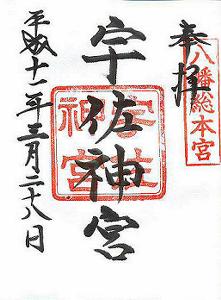 奉拝
八幡総本宮
宇佐神宮
宇佐
神宮
平成十一年三月二十八日